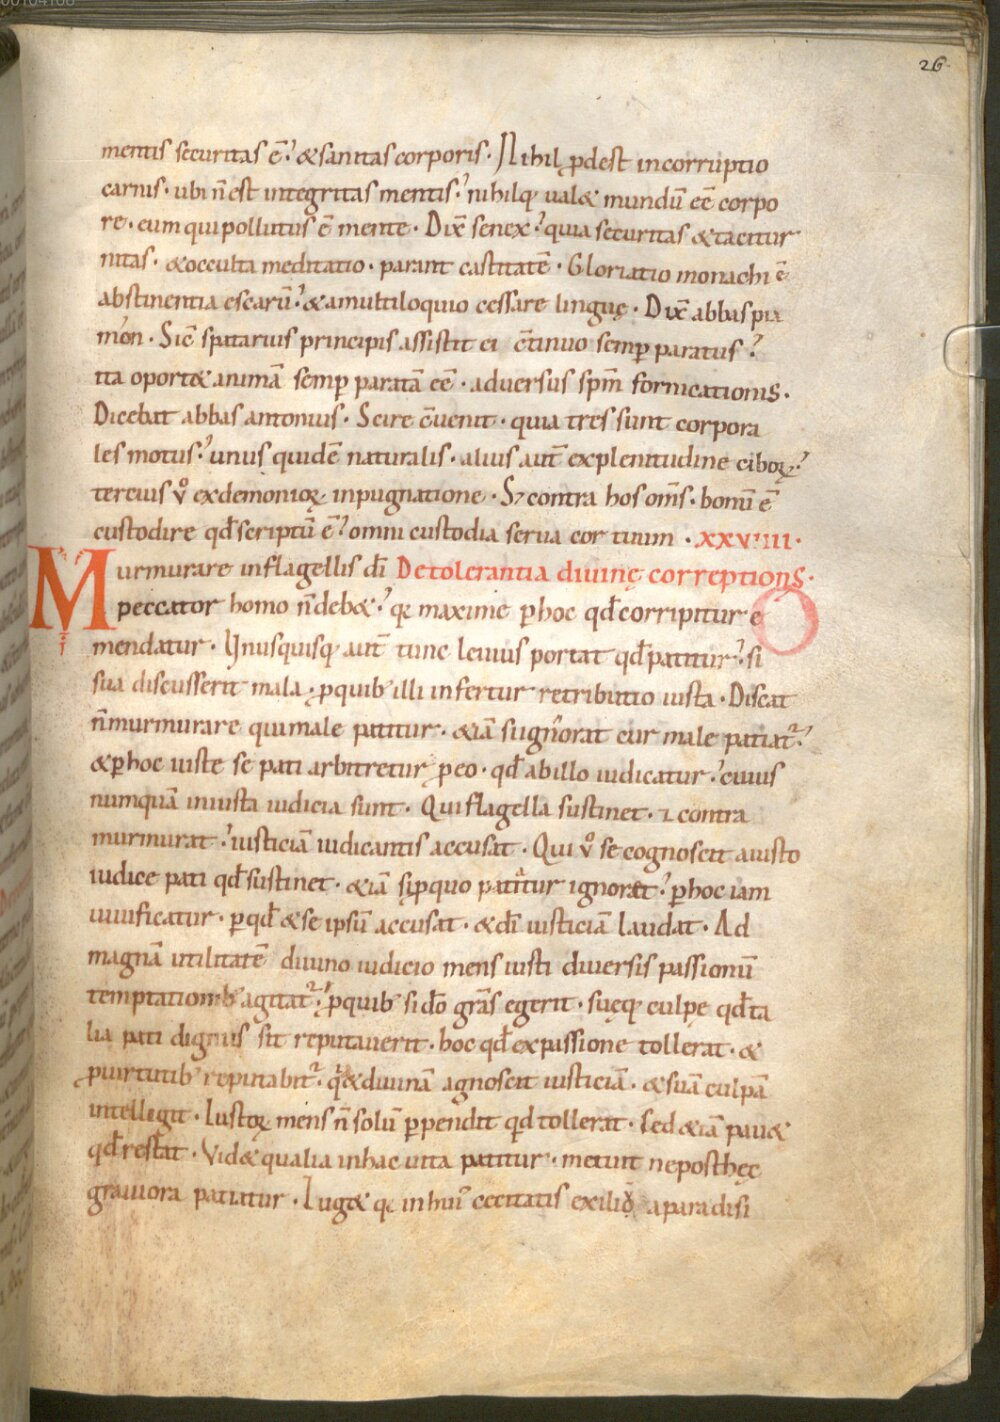 00104168
26
mentis securitas ē. &sanitas corporis. Nihil ꝓdest incorruptio
carnis. ubi n̄ est integritas mentis. nihilq; ual& mundū eē corpo
re. eum qui pollutus ē mente. Dix̄ senex. quia securitas &tacitur
nitas. &occulta meditatio. parant castitatē. Gloriatio monachi ē
abstinentia escarū. &amultiloquio cessare linguę. Dix̄ abbas pia
mon. Sic̄ spatarius principis assistit ei c̄tinuo semꝑ paratus.
ita oport& animā semꝑ paratā eē. aduersus sp̄m fornicationis.
Dicebat abbas antonius. Scire c̄uenit. quia tres sunt corpora
les motus. unus quidē naturalis. alius aut̄ ex plenitudine ciboꝝ.
tercius v̊ exdemonioꝝ inpugnatione. S; contra hos om̄s. bonū ē
custodire qđ scriptū ē. omni custodia serua cor tuum. xxviiii.
Murmurare inflagellis dī De tolerantia diuinę correptionis.
peccator homo n̄ deb&. q; maxime ꝑ hoc qđ corripitur e
mendatur. Unusquisq; aut̄ tunc leuius portat qđ patitur. si
sua discusserit mala. ꝓ quib; illi infertur retributio iusta. Discat
n̄ murmurare qui male patitur. &iā si ignorat cur male patiat᷑.
&ꝑ hoc iuste se pati arbitretur ꝑ eo. qđ ab illo iudicatur. cuius
numquā iniusta iudicia sunt. Qui flagella sustinet. ⁊ contra
murmurat. iusticiā iudicantis accusat. Qui v̊ se cognoscit a iusto
iudice pati qđ sustinet. &iā si ꝓ quo patitur ignor&. ꝑ hoc iam
iuuificatur. ꝑ qđ &se ipsū accusat. &dī iusticiā laudat. Ad
magnā utilitatē diuino iudicio mens iusti diuersis passionū
temptationib; agitat᷑. ꝓ quib; si dō grās egerit. suęq; culpę qđ ta
lia pati dignus sit reputauerit. hoc qđ ex passione tollerat. &
ꝓ uirtutib; reputabit᷑. q̄ &diuinā agnoscit iusticiā. &suā culpā
intellegit. Iustoꝝ mens n̄ solū ꝑpendit qđ tollerat. sed &iā pau&
qđ restat. Vid& qualia inhac uita patitur. metuit ne posthęc
grauiora patiatur. Lug& q; in hui᾽ cecitatis exilio a paradisi